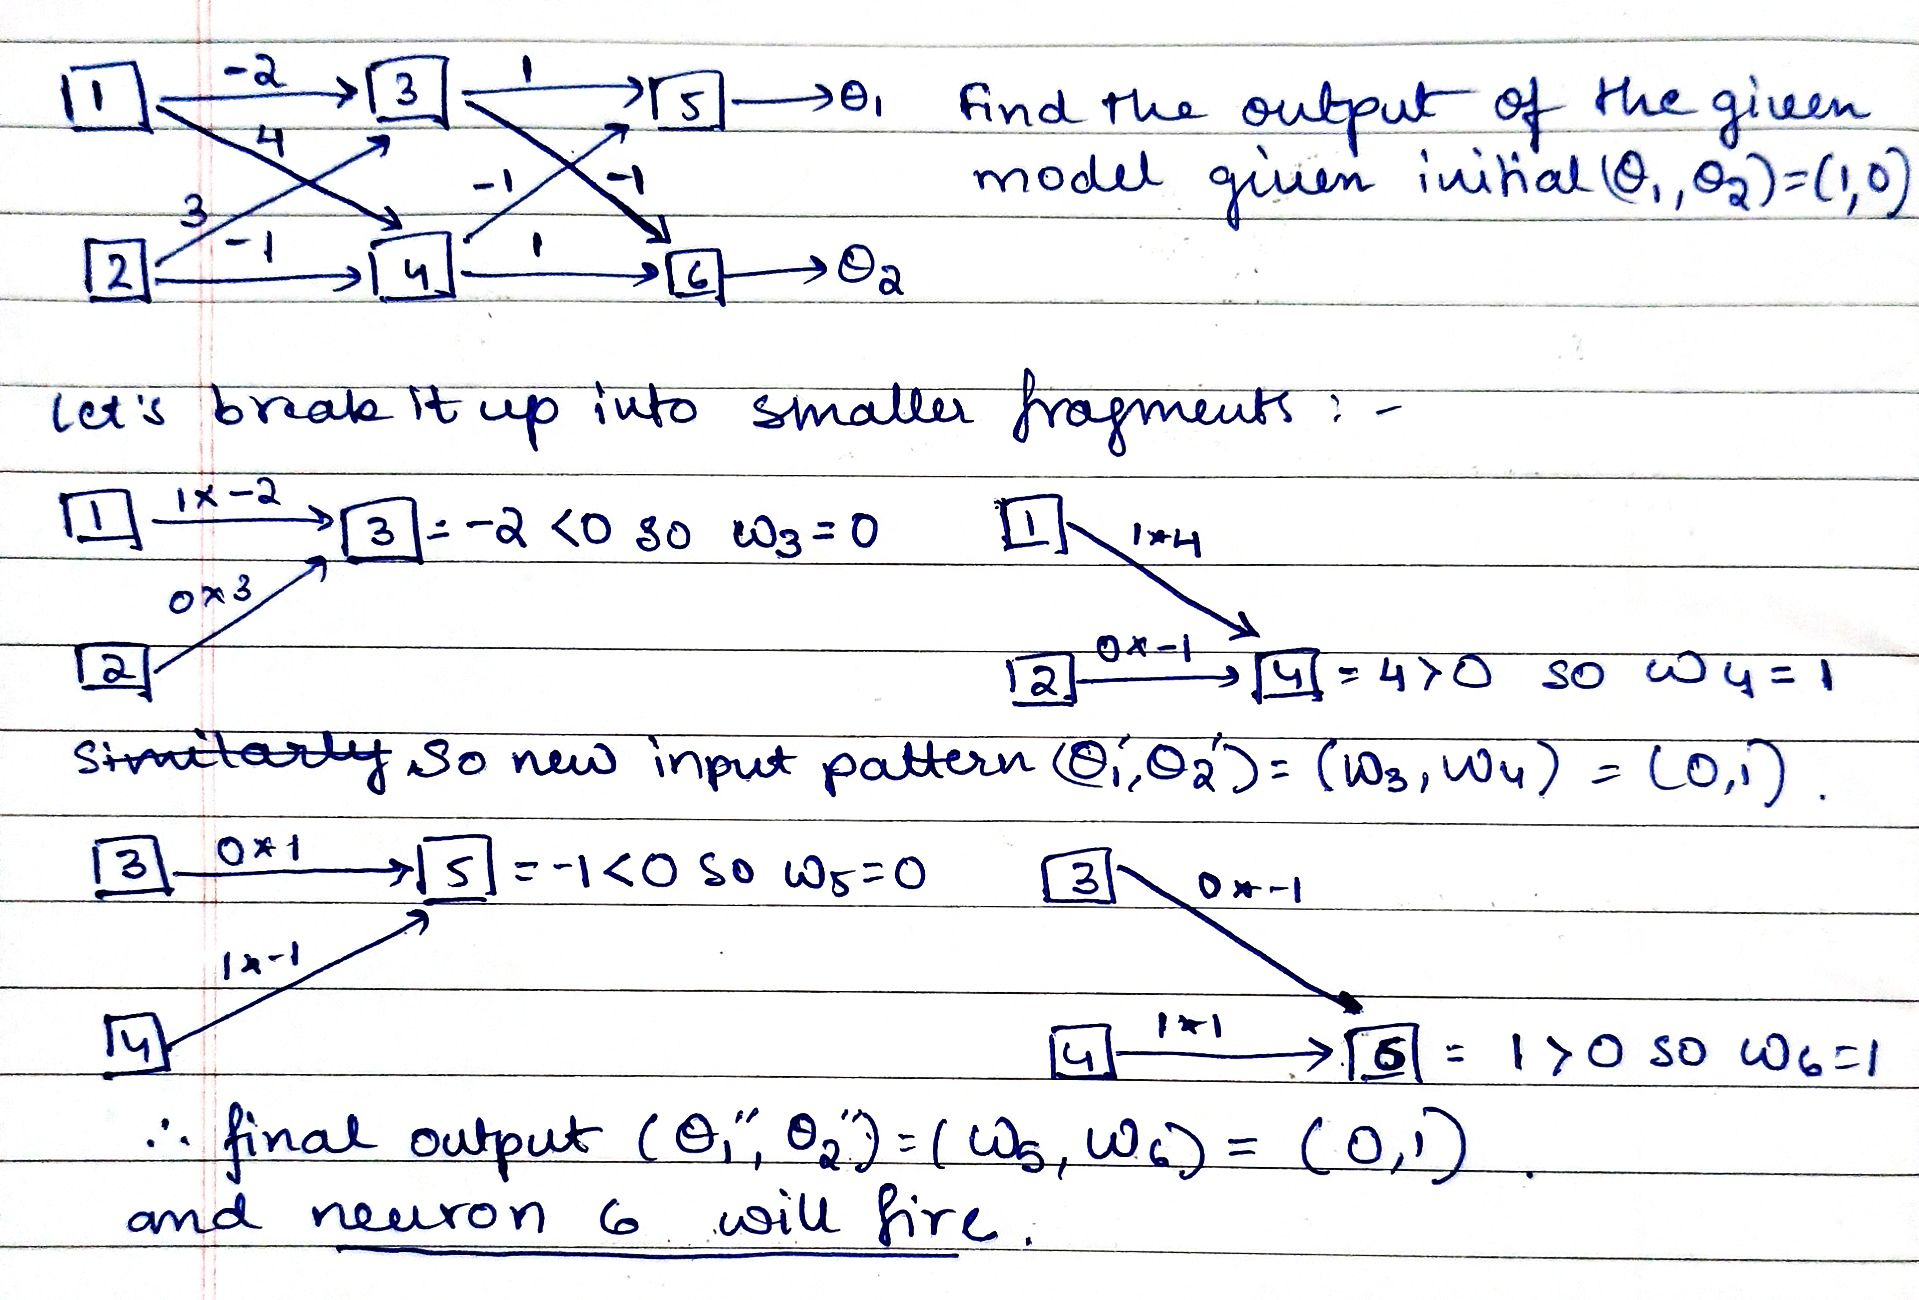 1 -2 3 1 5 θ₁ Find the output of the given
4 3 -1 -1 model given initial (θ₁, θ₂)=(1,0)
2 -1 4 1 6 θ₂
Let's break it up into smaller fragments :-
1 1×-2 3 = -2 <0 so w₃=0 1 1*4
0*3
2 2 0*-1 4 = 4>0 so w₄=1
Similarly So new input pattern (θ₁', θ₂')= (w₃, w₄) = (0,1).
3 0*1 5 = -1<0 so w₅=0 3 0*-1
1*-1
4 4 1*1 6 = 1>0 so w₆=1
∴ final output (θ₁'', θ₂'')=(w₅, w₆) = (0,1).
and neuron 6 will fire.